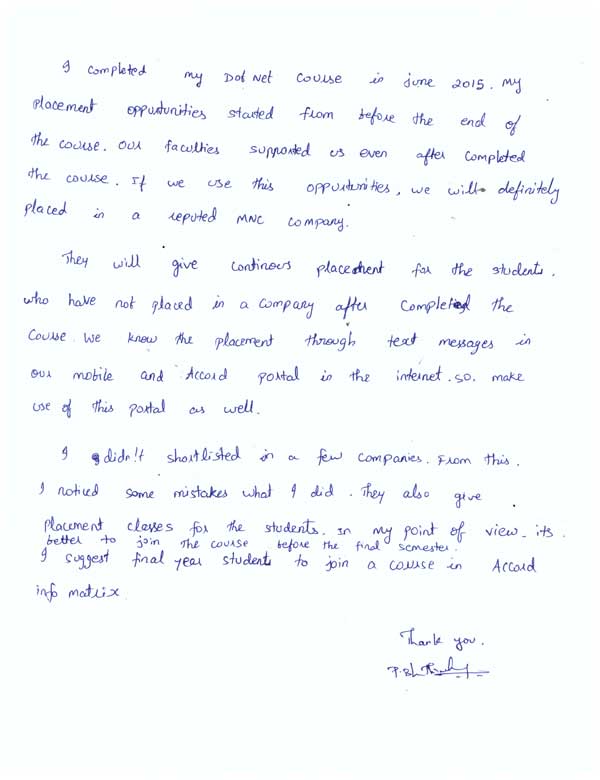 I completed my Dot Net course in june 2015. My
placement oppurtunities started from before the end of
the course. Our faculties supported us even after completed
the course. If we use this oppurtunities, we will definitely
placed in a reputed MNC company.
They will give continous placement for the students.
who have not placed in a company after completed the
course. We know the placement through text messages in
our mobile and Accord portal in the internet. so. make
use of this portal as well.
I didn't shortlisted in a few companies. From this.
I noticed some mistakes what I did. They also give
placement classes for the students. In my point of view. its.
better to join the course before the final semester.
I suggest final year students to join a course in Accord
info matrix
Thank you.